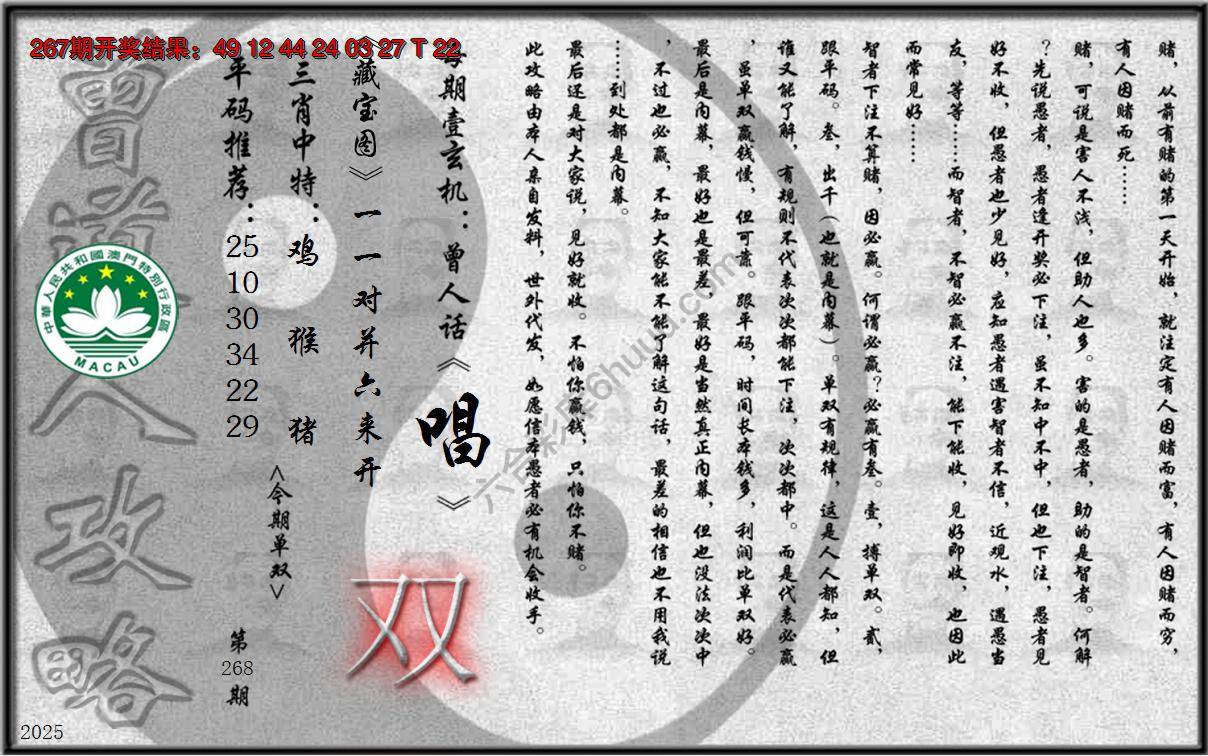 267期开奖结果：49 12 44 24 03 27 T 22
赌，从前有赌的第一天开始，就注定有人因赌而富，有人因赌而穷，
有人因赌而死……
赌，可说是害人不浅，但助人也多。害的是愚者，助的是智者。何解
？先说愚者，愚者逢开奖必下注，虽不知中不中，但也下注，愚者见
好不收，但愚者也少见好，应知愚者遇害智者不信，近观水，遇愚当
友，等等……而智者，不智必赢不注，能下能收，见好即收，也因此
而常见好……
智者下注不算赌，因必赢。何谓必赢？必赢有叁。壹，搏单双。贰，
跟平码。叁，出千（也就是内幕）。单双有规律，这是人人都知，但
谁又能了解，有规则不代表次次都能下注，次次都中。而是代表必赢
，虽单双赢钱慢，但可靠。跟平码，时间长本钱多，利润比单双好。
最后是内幕，最好也是最差，最好是当然真正内幕，但也没法次次中
，不过也必赢，不知大家能不能了解这句话，最差的相信也不用我说
……到处都是内幕。
最后还是对大家说，见好就收。不怕你赢钱，只怕你不赌。
此攻略由本人亲自发料，世外代发，如愿信本愚者必有机会收手。
每期壹玄机：曾人话《唱》
《藏宝图》一一对并六来开
三肖中特：鸡 猴 猪
平码推荐：25 10 30 34 22 29
<今期单双>
双
第268期
曾道人攻略
中華人民共和國澳門特別行政區
MACAU
2025